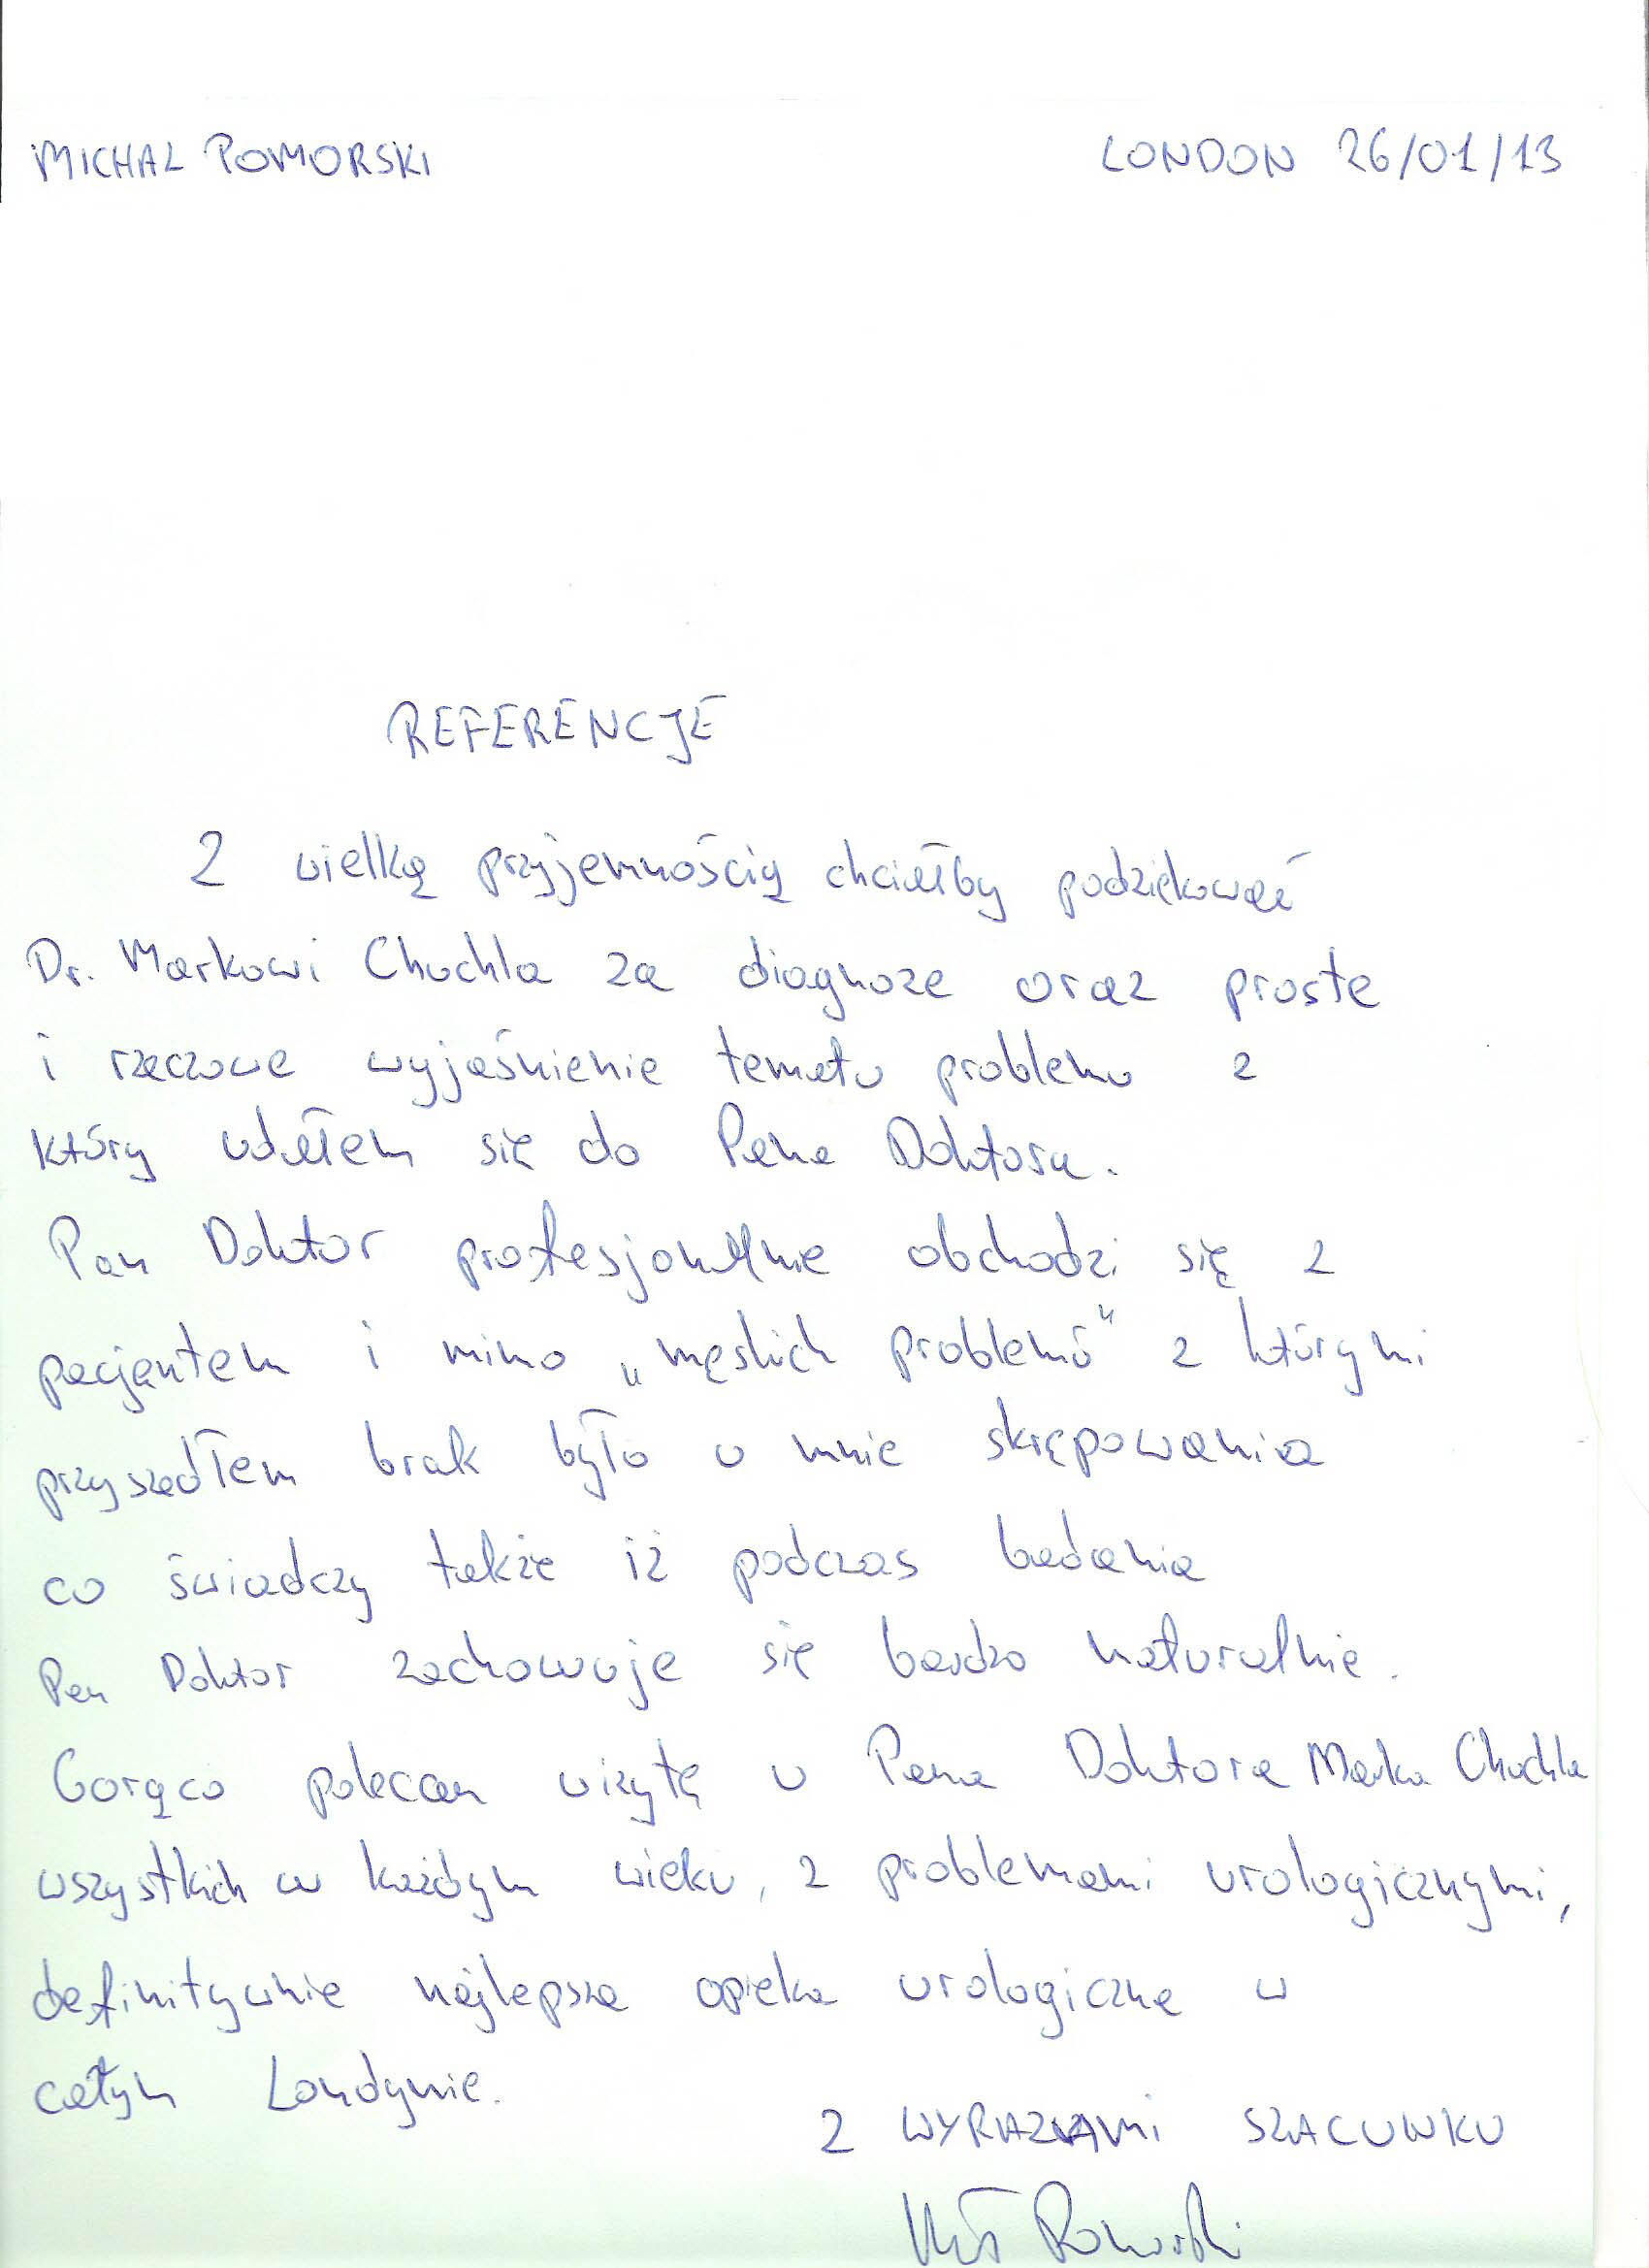 MICHAL POMORSKI LONDON 26/01/13
REFERENCJE
Z wielką przyjemnością chciałby podziękować
Dr. Markowi Chuchla za diagnoze oraz proste
i rzeczowe wyjaśnienie tematu problemu z
który udałem się do Pana Doktora.
Pan Doktor profesjonalnie obchodzi się z
pacjentem i mimo „męskich problemó" z którymi
przyszedłem brak było u mnie skrępowania
co świadczy także iż podczas badania
Pan Doktor zachowuje się bardzo naturalnie.
Gorąco polecam wizytę u Pana Doktora Marka Chuchla
wszystkich w każdym wieku, z problemami urologicznymi,
definitywnie najlepsza opieka urologiczna w
całym Londynie.
Z WYRAZAMI SZACUNKU
Pomorski